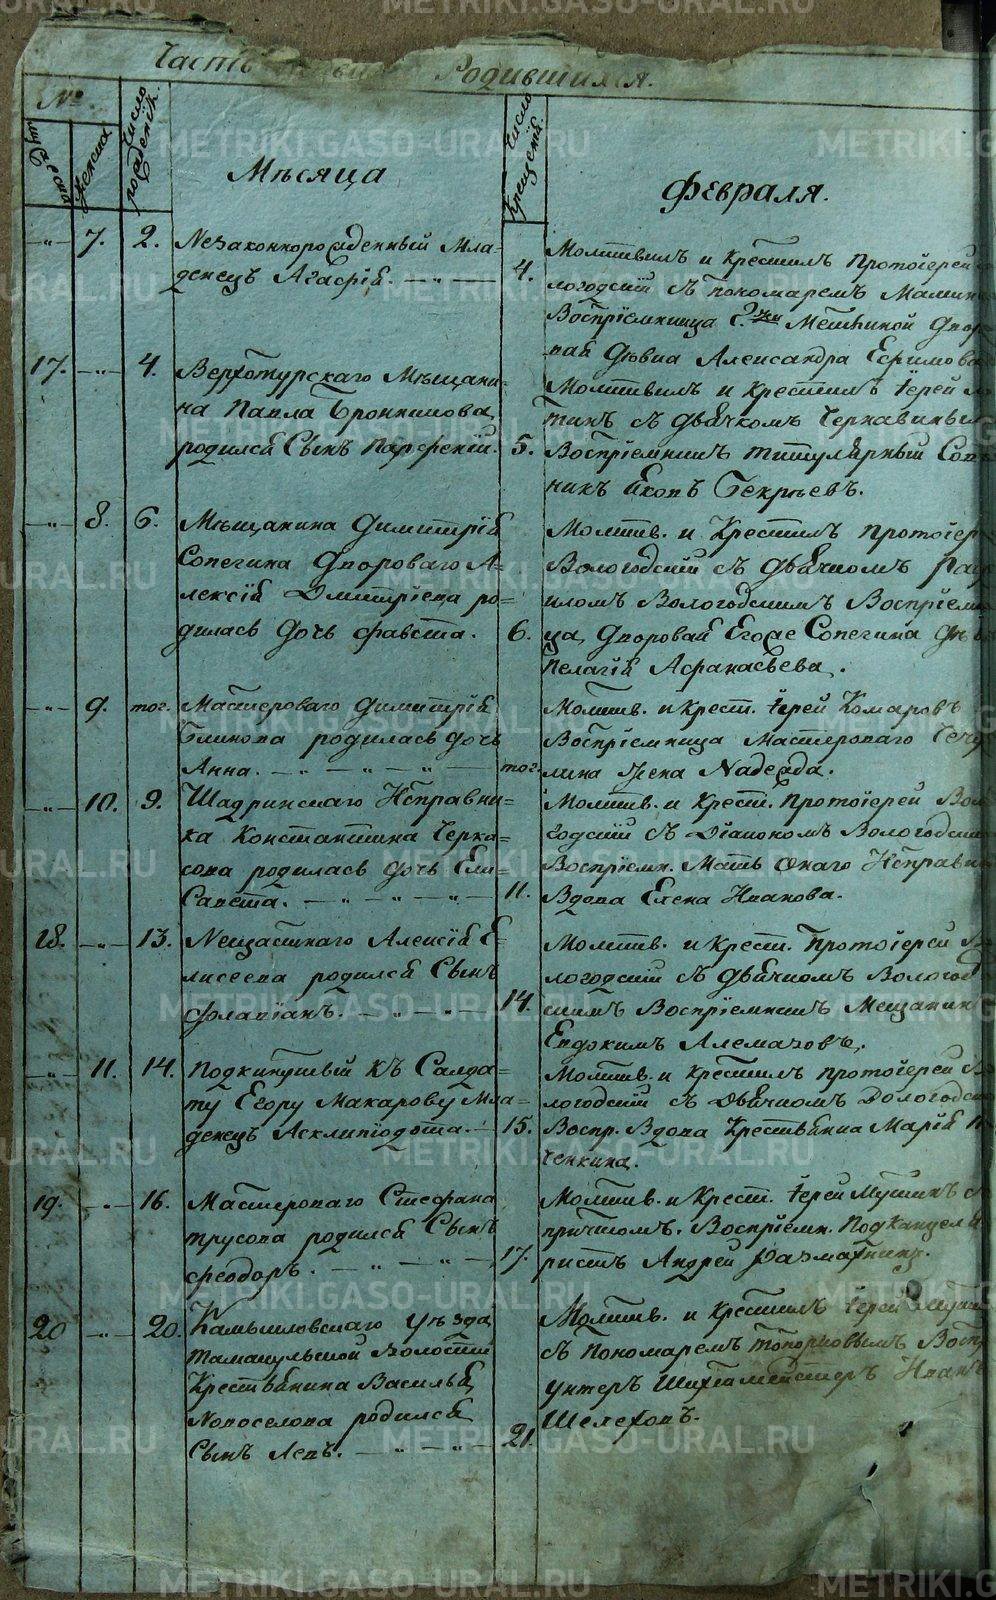 Часть Родившимся.
№
мужеска
женска
Число рожденія.
Мѣсяца
Число крещенія.
Февраля.
-„- 7. 2. Незаконнорожденный Мла-
денецъ Агафій.
4.
Молитвилъ и крестилъ Протоіерей
логодскій съ пономаремъ
Воспріемница Г. Мешкиной Двор
вая Девка Александра Ефимова
17. -„- 4. Верхотурскаго Мѣщани-
на Павла Бронникова
родился Сынъ Парфеній.
5.
Молитвилъ и крестилъ Іерей
съ дьячкомъ Чернавиным
Воспріемникъ титулярный Сов
никъ Яковъ
-„- 8. 6. Мѣщанина Димитрія
Сопегина Двороваго А-
лексія Дмитріева ро-
дилась дочь Фавста.
6.
Молитв. и Крестилъ протоіер
Вологодскій съ дьячкомъ
иломъ Вологодскимъ Воспріемн
ца, Дворовая Егоже Сопегина
Пелагія Афанасьева.
-„- 9. тог. Мастероваго Димитрія
Блинова родилась дочь
Анна.
тог.
Молитв. и крест. Іерей Комаровъ
Воспріемница Мастероваго
лина Жена Надежда.
-„- 10. 9. Шадринскаго Исправни-
ка Константина Черка-
сова родилась дочь Ели-
Савета.
11.
Молитв. и Крест. Протоіерей Вол
годскій съ Діакономъ Вологодски
Воспріемн. Мать онаго Исправни
Вдова Елена Иванова.
18. -„- 13. Неизвѣстнаго Алексія Е-
лисеева родился Сынъ
Флавіанъ.
14.
Молитв. и Крест. Протоіерей Во
логодскій съ дьячкомъ Вологод
скимъ Воспріемникъ Мещанин
Евдокимъ Алемасовъ.
-„- 11. 14. Подкинутый къ Салда-
ту Егору Макарову Мла-
денецъ Асклипіодота.
15.
Молитв. и крестилъ протоіерей Во
логодскій съ Дьячкомъ Вологодск
Воспр. Вдова Крестьянка Марія
ченкина.
19. -„- 16. Мастероваго Стефана
Трусова родился Сынъ
Феодоръ.
17.
Молитв. и Крест. Іерей Мутинъ съ
причтомъ. Воспріемн. Подканцеля
ристъ Андрей Размахнинъ.
20 -„- 20. Камышловскаго уѣзда
Тамакульской Волости
Крестьянина Василья
Новоселова родился
Сынъ Левъ.
21.
Молитв. и крестилъ Іерей
съ Пономаремъ Топорковымъ Воспр
унтеръ Шихтмейстеръ Иванъ
Шелеховъ.
METRIKI.GASO-URAL.RU